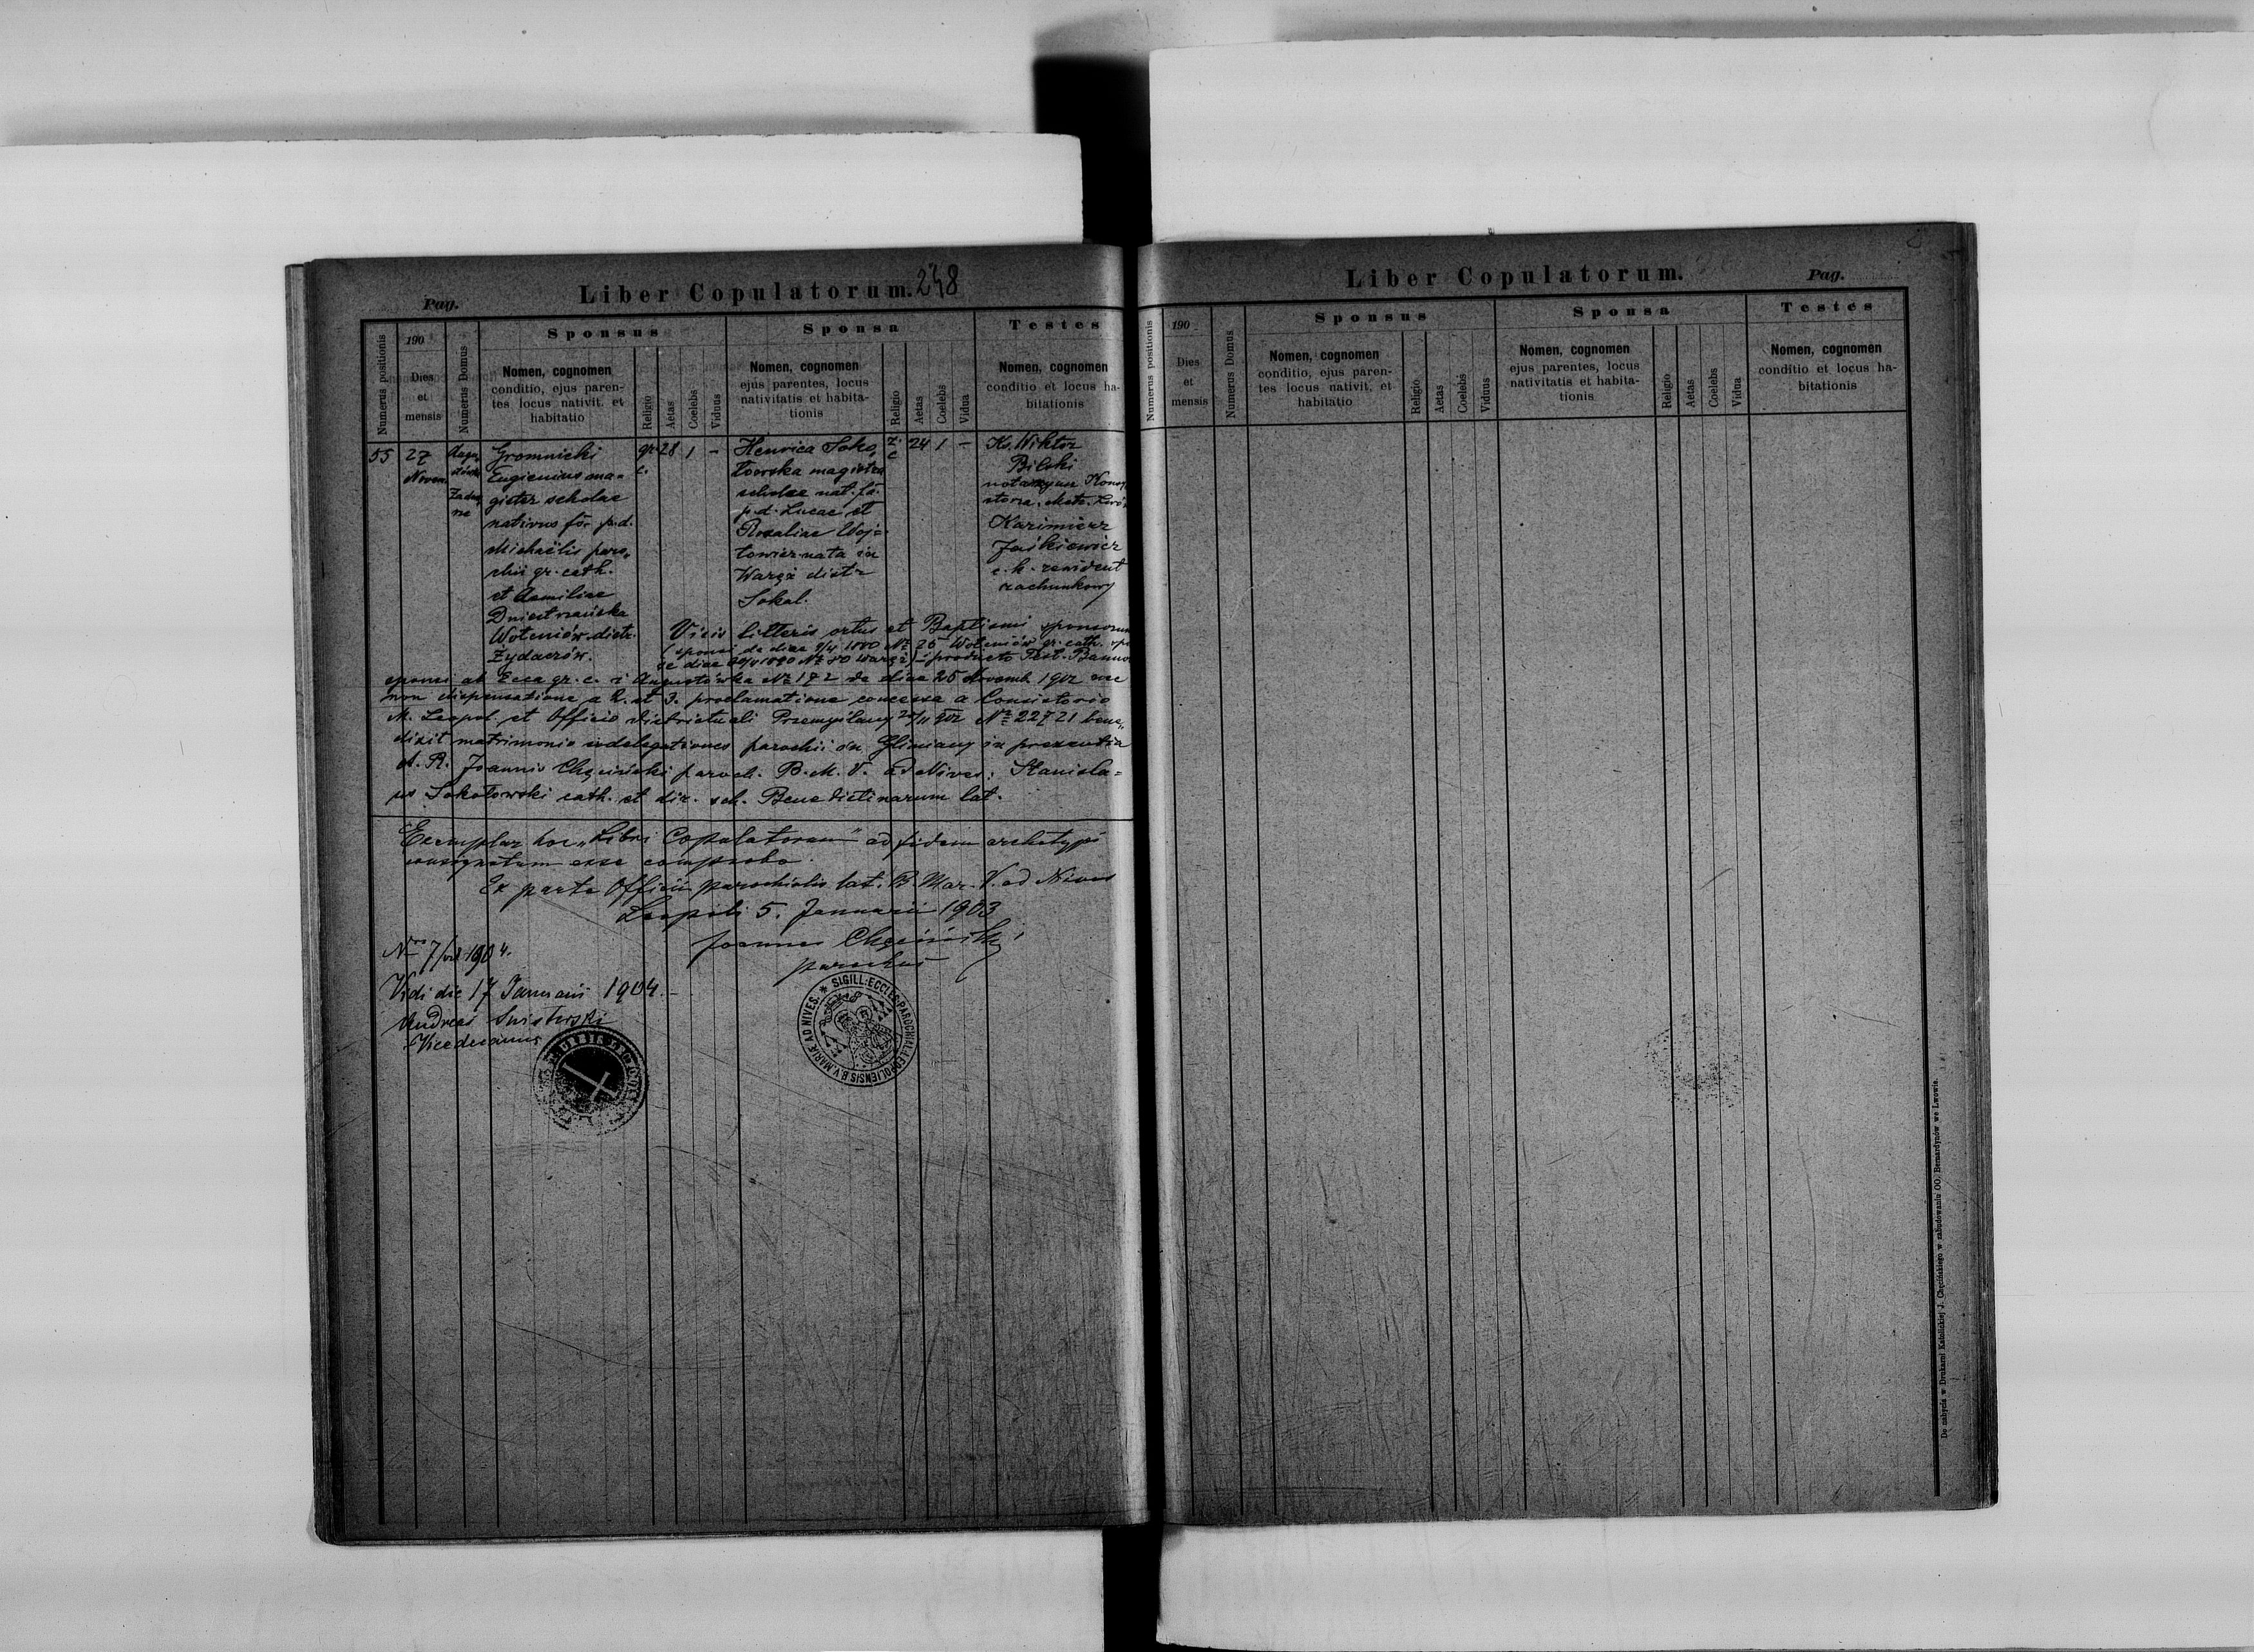 Liber Copulatorum. 248
Pag.
Numerus positionis
190
Dies
et
mensis
Numerus Domus
Sponsus
Nomen, cognomen
conditio, ejus paren-
tes locus nativit. et
habitatio
Religio
Aetas
Coelebs
Viduus
Sponsa
Nomen, cognomen
ejus parentes, locus
nativitatis et habita-
tionis
Religio
Aetas
Coelebs
Vidua
Testes
Nomen, cognomen
conditio et locus ha-
bitationis
55
27
Novem.
Gromnicki
Eugienius ma-
gister scholae
nativus
Michaëlis paro-
chii gr. cath.
et
Wołcniów distr.
Żydaczów.
gr.
c.
28
1
-
Henrica Soko,
łowska magistra
scholae nat.
p. d. Lucae et
Rosaliae Woj=
towicz nata in
Waręż distr.
Sokal.
r.
c
24
1
-
Ks. Wiktor
Bilski
notaryusz
Kazimierz
Jaśkiewicz
c. k. rewident
rachunkowy
Visis litteris ortus et Baptismi sponsorum
sponsi de die 9/4 1880 No 25 gr. cath.
de die No 80 Waręż producto Test. Bannor
sponsi ab Eccl gr. c. Augustówka No 172 de die 25 Novemb 1902 nec
non dispensatione a 2. et 3. proclamatione concessa a Consistorio
M. Leopol. et Officio districtuali Przemyślany No 22721 bene,,
dixit matrimonio parochii Gliniany in praesentia
A. R. Joannis Chęciński paroch. B. M. V. ad Nives: Stanisla=
us Sokołowski cath. et dir. sch. Benedictinarum lat.
Exemplar hoc „Libri Copulatorum" ad fidem archetypi
consignatum esse comprobo.
Ex parte Officii parochialis lat. B. Mar. V. ad Nives
Leopoli 5. Januarii 1903
Joannes Chęciński
parochus
1904.
Vidi die 17 Januarii 1904.
Andreas
Vicedecanus
SIGILL: ECCLES: PAROCHIAL: LEOPOLIENSIS B.V. MARIÆ AD NIVES. *
Liber Copulatorum.
Pag.
Numerus positionis
190
Dies
et
mensis
Numerus Domus
Sponsus
Nomen, cognomen
conditio, ejus paren-
tes locus nativit. et
habitatio
Religio
Aetas
Coelebs
Viduus
Sponsa
Nomen, cognomen
ejus parentes, locus
nativitatis et habita-
tionis
Religio
Aetas
Coelebs
Vidua
Testes
Nomen, cognomen
conditio et locus ha-
bitationis
Do nabycia w Drukarni Katolickiej J. Chęcińskiego w zabudowaniu OO. Bernardynów we Lwowie.